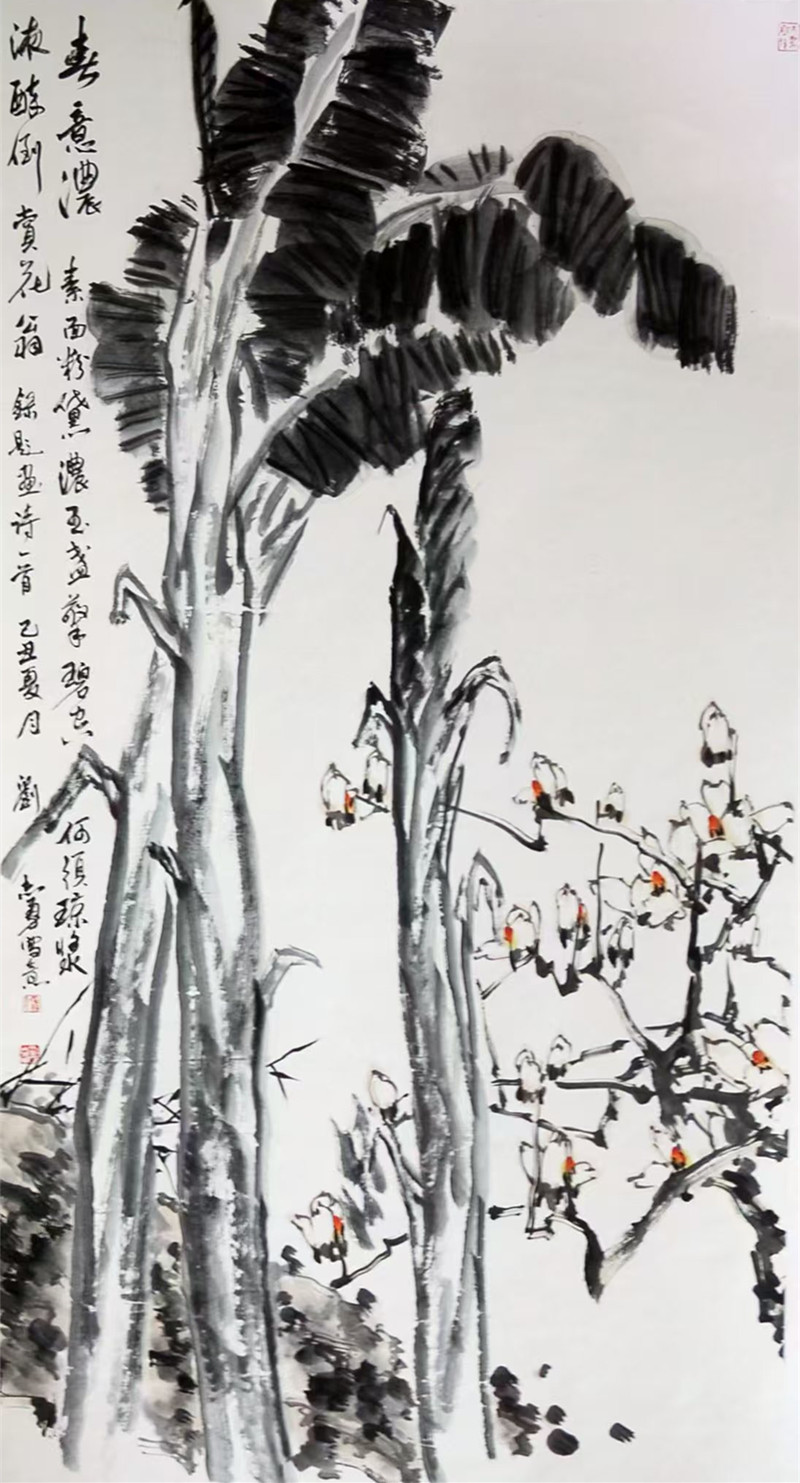 春意濃 素面粉黛濃玉盞擎碧空 何須瓊漿
液醉倒賞花翁 錄題畫诗一首 乙丑夏月 劉志勇寫意